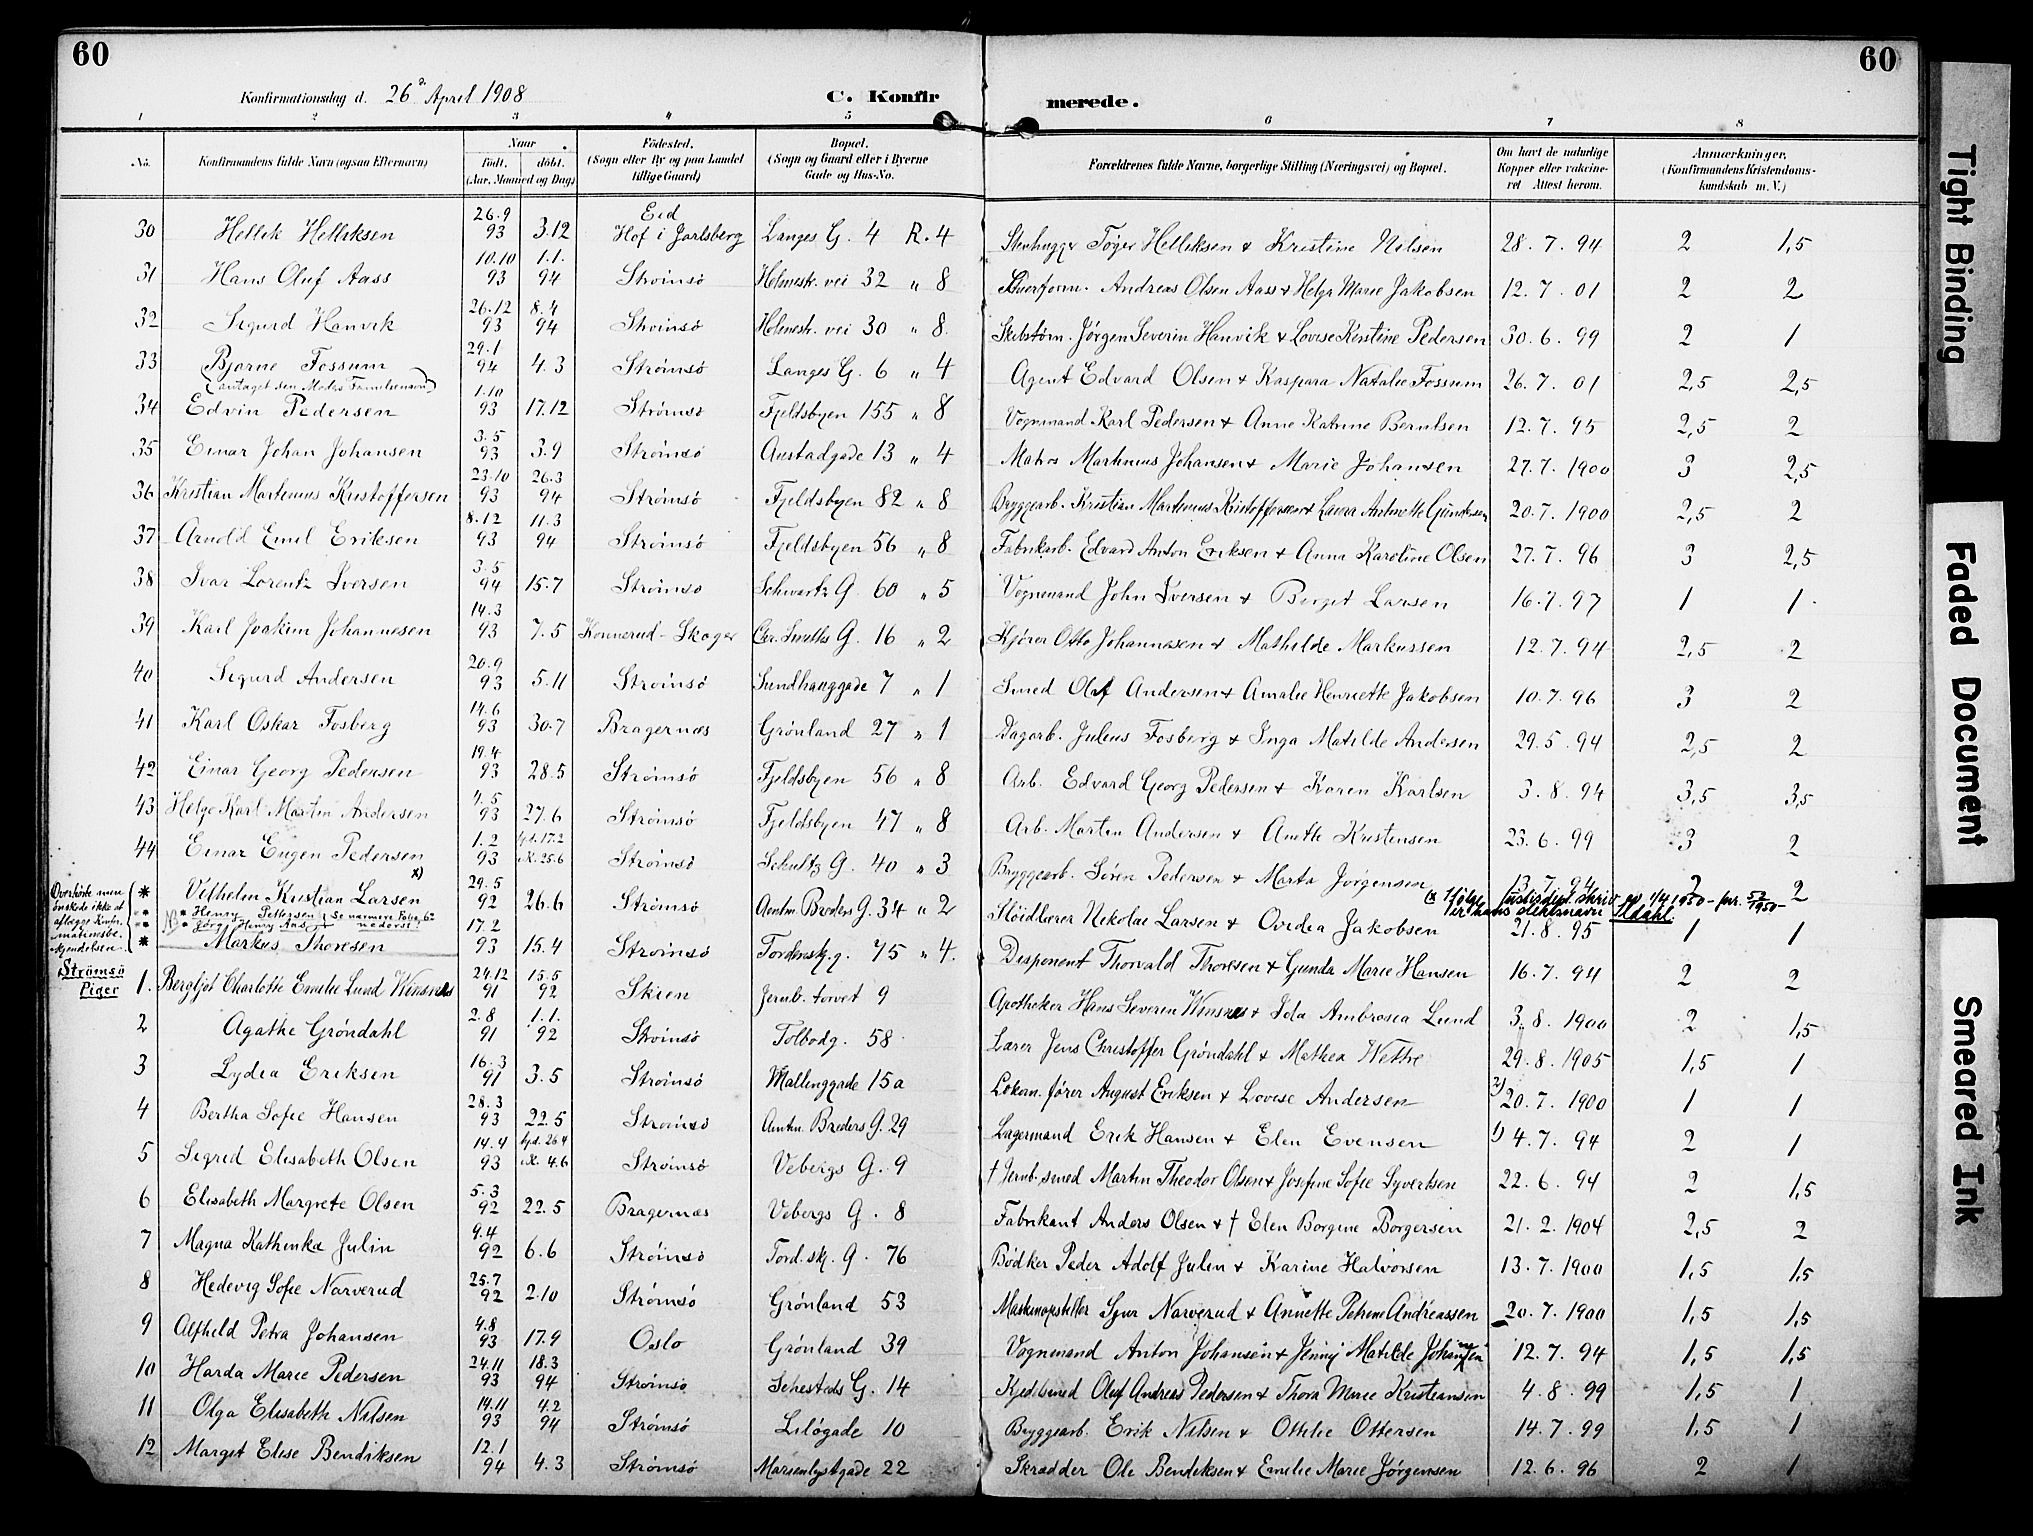 60
60
Konfirmationsdag d. 26 April 1908
C. Konfir merede.
1 2 3 4 5 6 7 8
No. Konfirmandens fulde Navn (ogsaa Efternavn) Naar Født. døbt. (Aar, Maaned og Dag) Fødested. (Sogn eller By og paa Landet tillige Gaard) Bopæl. (Sogn og Gaard eller i Byerne Gade og Hus-No. Forældrenes fulde Navne, borgerlige Stilling (Næringsvei) og Bopæl. Om havt de naturlige Kopper eller vakcineret Attest herom. Anmærkninger. (Konfirmandens Kristendomskundskab m. V.)
30 Hellek Helleksen 26.9 93 3.12 Eid Hof i Jarlsberg Langes G. 4 R. 4 Stenhugger Tøger Helleksen & Kristine Nilsen 28.7.94 2 1,5
31 Hans Oluf Aass 10.10 93 1.1. 94 Strømsø Holmestr. vei 32 " 8 Andreas Olsen Aass & Helga Marie Jakobsen 12.7.01 2 2
32 Sigurd Hanvik 26.12 93 8.4 94 Strømsø Holmestr. vei 30 " 8 Skibstøm. Jørgen Severin Hanvik & Lovise Kirstine Pedersen 30.6.99 2 1
33 Bjarne Fossum 29.1 94 4.3 Strømsø Langes G. 6 " 4 Agent Edvard Olsen & Kaspara Natalie Fossum 26.7.01 2,5 2,5
(antaget sin Moders Familienavn)
34 Edvin Pedersen 1.10 93 17.12 Strømsø Fjeldsbyen 155 " 8 Vognmand Karl Pedersen & Anne Katrine Berntsen 12.7.95 2,5 2
35 Einar Johan Johansen 3.5 93 3.9 Strømsø Austadgade 13 " 4 Matros Martinius Johansen & Marie Johansen 27.7.1900 3 2,5
36 Kristian Martinius Kristoffersen 23.10 93 26.3 94 Strømsø Fjeldsbyen 82 " 8 Bryggearb. Kristian Martinius Kristoffersen & Laura Antonette Gundersen 20.7.1900 2,5 2
37 Arnold Emil Eriksen 8.12 93 11.3 94 Strømsø Fjeldsbyen 56 " 8 Fabrikarb. Edvard Anton Eriksen & Anna Karoline Olsen 27.7.96 3 2,5
38 Ivar Lorentz Iversen 3.5 94 15.7 Strømsø Schwartz G. 60 " 5 Vognmand John Iversen & Berget Larsen 16.7.97 1 1
39 Karl Joakim Johannesen 14.3 93 7.5 Konnerud - Skoger Chr. Smiths G. 16 " 2 Kjører Otto Johannesen & Mathilde Markussen 12.7.94 2,5 2
40 Sigurd Andersen 20.9 93 5.11 Strømsø Sundhauggade 7 " 1 Smed Olaf Andersen & Amalie Henriette Jakobsen 10.7.96 3 2
41 Karl Oskar Fosberg 14.6 93 30.7 Bragernæs Grønland 27 " 1 Dagarb. Julius Fosberg & Inga Matilde Andersen 29.5.94 2,5 2
42 Einar Georg Pedersen 19.4 93 28.5 Strømsø Fjeldsbyen 56 " 8 Arb. Edvard Georg Pedersen & Karen Karlsen 3.8.94 3,5 3,5
43 Helge Karl Martin Andersen 4.5 93 27.6 Strømsø Fjeldsbyen 47 " 8 Arb. Martin Andersen & Anette Kristensen 23.6.99 3 2
44 Einar Eugen Pedersen 1.2 93 hjd. 17.2 k. 25.6 Strømsø Schultz G. 40 " 3 Bryggearb. Søren Pedersen & Marta Jørgensen 13.7.94 2 2
x) Ifølge justisdept. skriv av 1/4 1950 - jnr. 52/1950 - er hans slektsnavn Lidahl.
Overhørte men ønskede ikke at aflægge Konfirmationsbekjendelsen
* Vilhelm Kristian Larsen x) 29.5 92 26.6 Strømsø Amtm. Breders G. 34 " 2 Sløidlærer Nikolai Larsen & Ovidia Jakobsen 21.8.95 1 1
NB * Henry Pettersen * Jørg. Henry Aas } Se nærmere Folio 62 nederst!
* Markus Thoresen 17.2 93 15.4 Strømsø Tordenskj.g. 75 " 4. Disponent Thorvald Thoresen & Gunda Marie Hansen 16.7.94 2 2
Strømsø Piger
1. Bergljot Charlotte Emelie Lund Winsnes 24.12 91 15.5 92 Skien Jernb. torvet 9 Apotheker Hans Severin Winsnes & Ida Ambrosia Lund 3.8.1900 2 1,5
2 Agathe Grøndahl 2.8 91 1.1. 92 Strømsø Tolbodg. 58 Lærer Jens Christoffer Grøndahl & Mathea Wettre 29.8.1905 1,5 1
3 Lydia Eriksen 16.3 91 3.5 Strømsø Mallinggade 15a Lokom. fører August Eriksen & Lovise Andersen 2) 20.7.1900 1 1
4 Bertha Sofie Hansen 28.3 93 22.5 Strømsø Amtm. Breders G. 29 Lagermand Erik Hansen & Elen Evensen 1) 4.7.94 2 1
5 Sigrid Elisabeth Olsen 14.4 93 hjd. 26.4 k. 4.6 Strømsø Vebergs G. 9 † Jernb. smed Martin Theodor Olsen & Josefine Sofie Syvertsen 22.6.94 2 1,5
6 Elisabeth Margrete Olsen 5.3 92 22.5 Bragernæs Vebergs G. 8 Fabrikant Anders Olsen & † Elen Borgine Borgersen 21.2.1904 2,5 2
7 Magna Kathinka Julin 9.4 92 6.6 Strømsø Tord.skj. G. 76 Bødker Peder Adolf Julin & Karine Halvorsen 13.7.1900 1,5 1,5
8 Hedevig Sofie Narverud 25.7 92 2.10 Strømsø Grønland 53 Maskinopstiller Sjur Narverud & Annette Petrine Andreassen 20.7.1900 1,5 1,5
9 Alfhild Petra Johansen 4.8 93 17.9 Oslo Grønland 39 Vognmand Anton Johansen & Jenny Matilde 12.7.94 1,5 1,5
10 Harda Marie Pedersen 24.11 93 18.3 94 Strømsø Schesteds G. 14 Kjedelsmed Oluf Andreas Pedersen & Thora Marie Kristiansen 4.8.99 1,5 1
11 Olga Elisabeth Nilsen 14.11 93 4.2 94 Strømsø Liløgade 10 Bryggearb. Erik Nilsen & Ottilie Ottersen 14.7.99 1,5 1
12 Margit Elise Bendiksen 12.1 94 4.3 Strømsø Marienlystgade 22 Skrædder Ole Bendiksen & Emilie Marie Jørgensen 12.6.96 2 1
Tight Binding
Faded Document
Smeared Ink